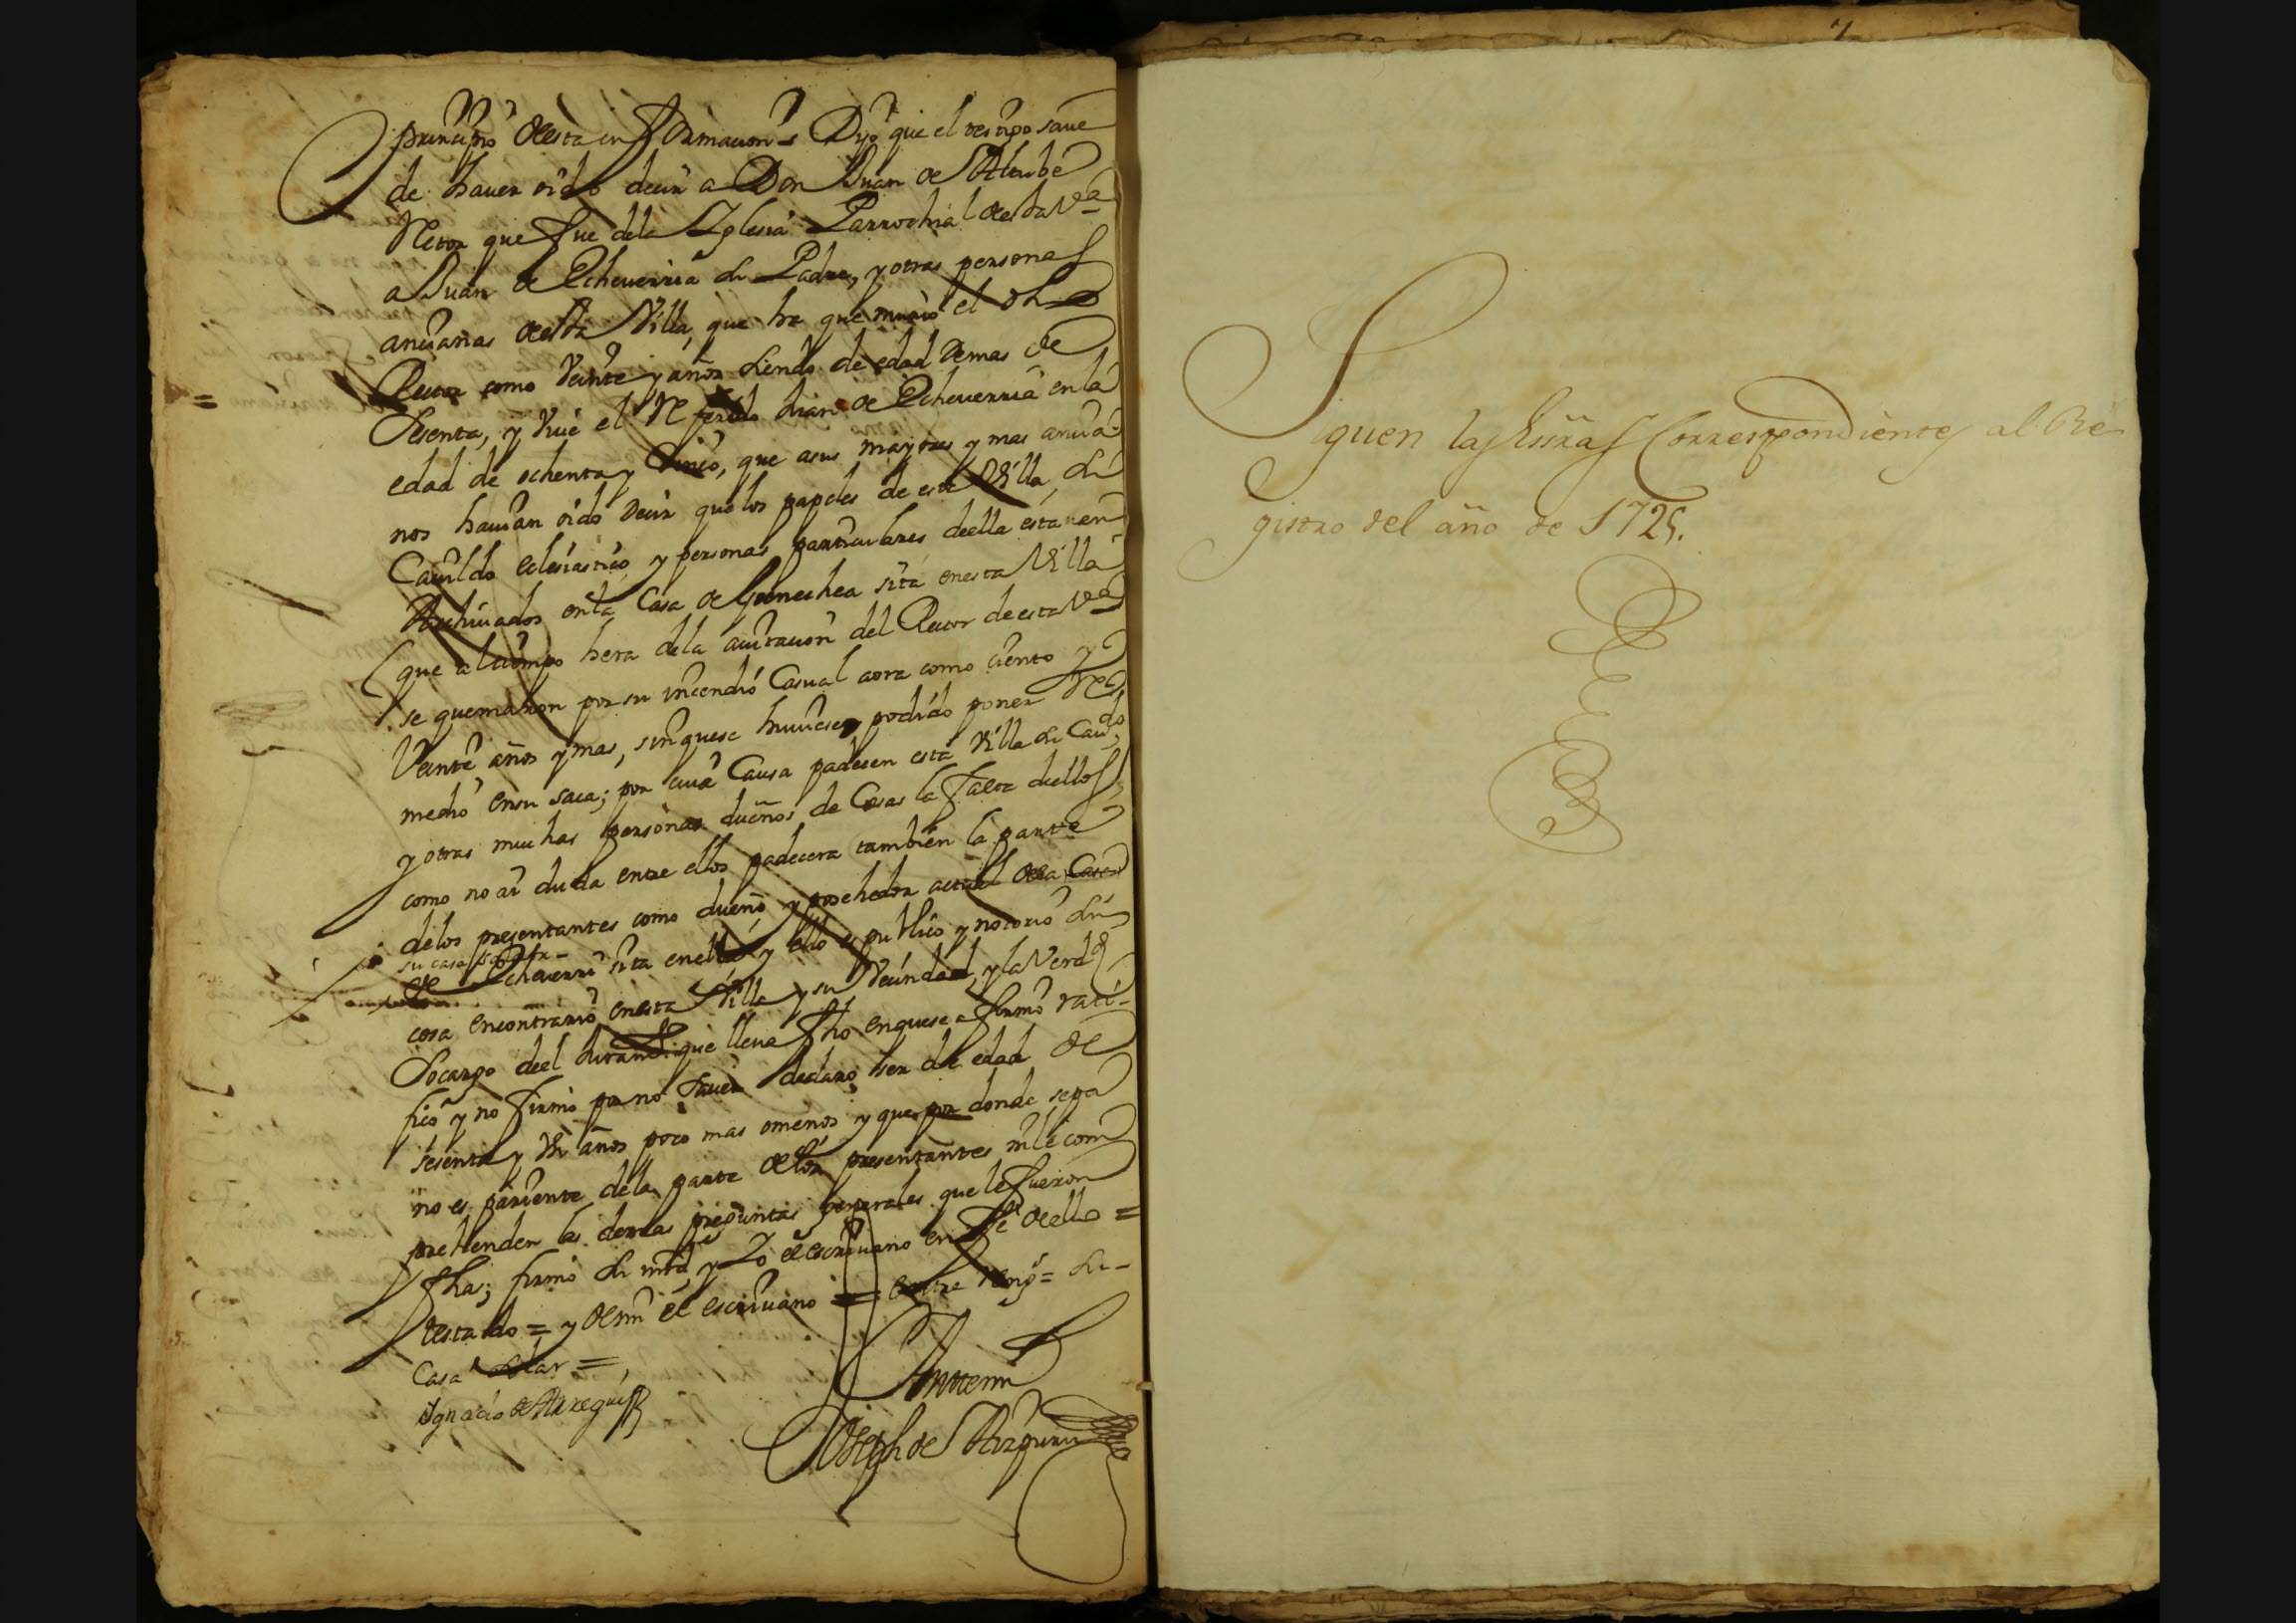 principio desta informacion = Dijo que el testigo save
de haver oido decir a Don Juan de
Retor que fue dela Iglesia Parrochial desta Va
a Juan de Echeverria su Padre, y otras personas
ancianas desta Villa, que ha que murio el dho
Retor como Veinte y años siendo de edad de mas de
sesenta, y Vive el Referido Juan de Echeverria en la
edad de ochenta y Cinco, que asus mayores y mas ancia-
nos havian oido decir que los papeles de esta Villa, su
Cavildo eclesiastico y personas particulares de ella estaven
Archivados en la Casa de Goenechea sita en esta Villa
(que al tiempo hera dela avitacion del Retor de esta Va)
se quemaron por su incendio Casual aora como ciento y
Veinte años y mas, sin que se huviese podido poner Re-
medio en su saca; por cuia Causa padecen esta Villa su Cavdo
y otras muchas personas dueños de Casas la falta de ellos
como no ai duda entre ellos padecera tambien la parte
delos presentantes como dueño y posehedor actual dela Casa
su casa solar
de Echeverri sita en ella y ello es publico y notorio sin
cosa en contrario en esta Villa y su Vecindad, y la Verdd
Socargo de el Juramto que lleva fho en que se afirmo rati-
fico y no firmo por no saver declaro ser de edad de
sesenta y años poco mas omenos y que por donde sepa
no es pariente dela parte delos presentantes ni le com
prehenden las demas preguntas generales que le fueron
fhas; firmo su md y Yo el escrivano en fe de ello =
testado = y de mi el escrivano = entre Rengs = su
Casa solar =
Ignacio de Aregui
Ante mi
Joseph de Aizpuru
Siguen las Essras Correspondientes al Re-
gistro del año de 1725.